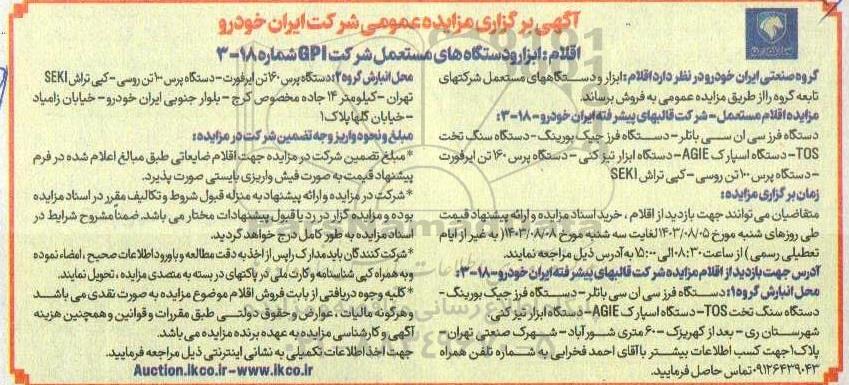 آگهی برگزاری مزایده عمومی شرکت ایران خودرو
اقلام: ابزار و دستگاه های مستعمل شرکت GPI شماره ۱۸-۳
گروه صنعتی ایران خودرو در نظر دارد اقلام: ابزار و دستگاههای مستعمل شرکتهای
تابعه گروه را از طریق مزایده عمومی به فروش برساند.
مزایده اقلام مستعمل - شرکت قالبهای پیشرفته ایران خودرو - ۱۸-۳:
دستگاه فرز سی ان سی باتلر - دستگاه فرز جیک بورینگ - دستگاه سنگ تخت
TOS - دستگاه اسپارک AGIE - دستگاه ابزار تیز کنی - دستگاه پرس ۱۶۰ تن ایرفورت
- دستگاه پرس ۱۰۰ تن روسی - کپی تراش SEKI
زمان برگزاری مزایده:
متقاضیان می توانند جهت بازدید از اقلام ، خرید اسناد مزایده و ارائه پیشنهاد قیمت
طی روزهای شنبه مورخ ۱۴۰۳/۰۸/۰۵ لغایت سه شنبه مورخ ۱۴۰۳/۰۸/۰۸( به غیر از ایام
تعطیلی رسمی ) از ساعت ۰۸:۳۰ الی ۱۵:۰۰ به آدرس ذیل مراجعه نمایند.
آدرس جهت بازدید از اقلام مزایده شرکت قالبهای پیشرفته ایران خودرو - ۱۸-۳:
محل انبارش گروه ۱: دستگاه فرز سی ان سی باتلر - دستگاه فرز جیک بورینگ -
دستگاه سنگ تخت TOS - دستگاه اسپارک AGIE - دستگاه ابزار تیز کنی
شهرستان ری - بعد از کهریزک - ۶۰۰ متری شورآباد - شهرک صنعتی تهران -
پلاک ۱ جهت کسب اطلاعات بیشتر با آقای احمد فخرایی به شماره تلفن همراه
۰۹۱۲۶۴۳۹۰۴۳ تماس حاصل فرمایید.
محل انبارش گروه ۲: دستگاه پرس ۱۶۰ تن ایرفورت - دستگاه پرس ۱۰۰ تن روسی - کپی تراش SEKI
تهران - کیلومتر ۱۴ جاده مخصوص کرج - بلوار جنوبی ایران خودرو - خیابان زامیاد
- خیابان گلها پلاک ۱
مبلغ و نحوه واریز وجه تضمین شرکت در مزایده:
* مبلغ تضمین شرکت در مزایده جهت اقلام ضایعاتی طبق مبالغ اعلام شده در فرم
پیشنهاد قیمت به صورت فیش واریزی بایستی صورت پذیرد.
* شرکت در مزایده و ارائه پیشنهاد به منزله قبول شروط و تکالیف مقرر در اسناد مزایده
بوده و مزایده گزار در رد یا قبول پیشنهادات مختار می باشد. ضمناً مشروح شرایط در
اسناد مزایده به طور کامل درج خواهد گردید.
* شرکت کنندگان باید مدارک را پس از اخذ به دقت مطالعه و با ورود اطلاعات صحیح ، امضاء نموده
و به همراه کپی شناسنامه و کارت ملی در پاکتهای در بسته به متصدی مزایده ، تحویل نمایند.
* کلیه وجوه دریافتی از بابت فروش اقلام موضوع مزایده به صورت نقدی می باشد
و هرگونه مالیات ، عوارض و حقوق دولتی طبق مقررات و قوانین و همچنین هزینه
آگهی و کارشناسی مزایده به عهده برنده مزایده می باشد.
جهت اخذ اطلاعات تکمیلی به نشانی اینترنتی ذیل مراجعه فرمایید.
Auction.ikco.ir - www.ikco.ir